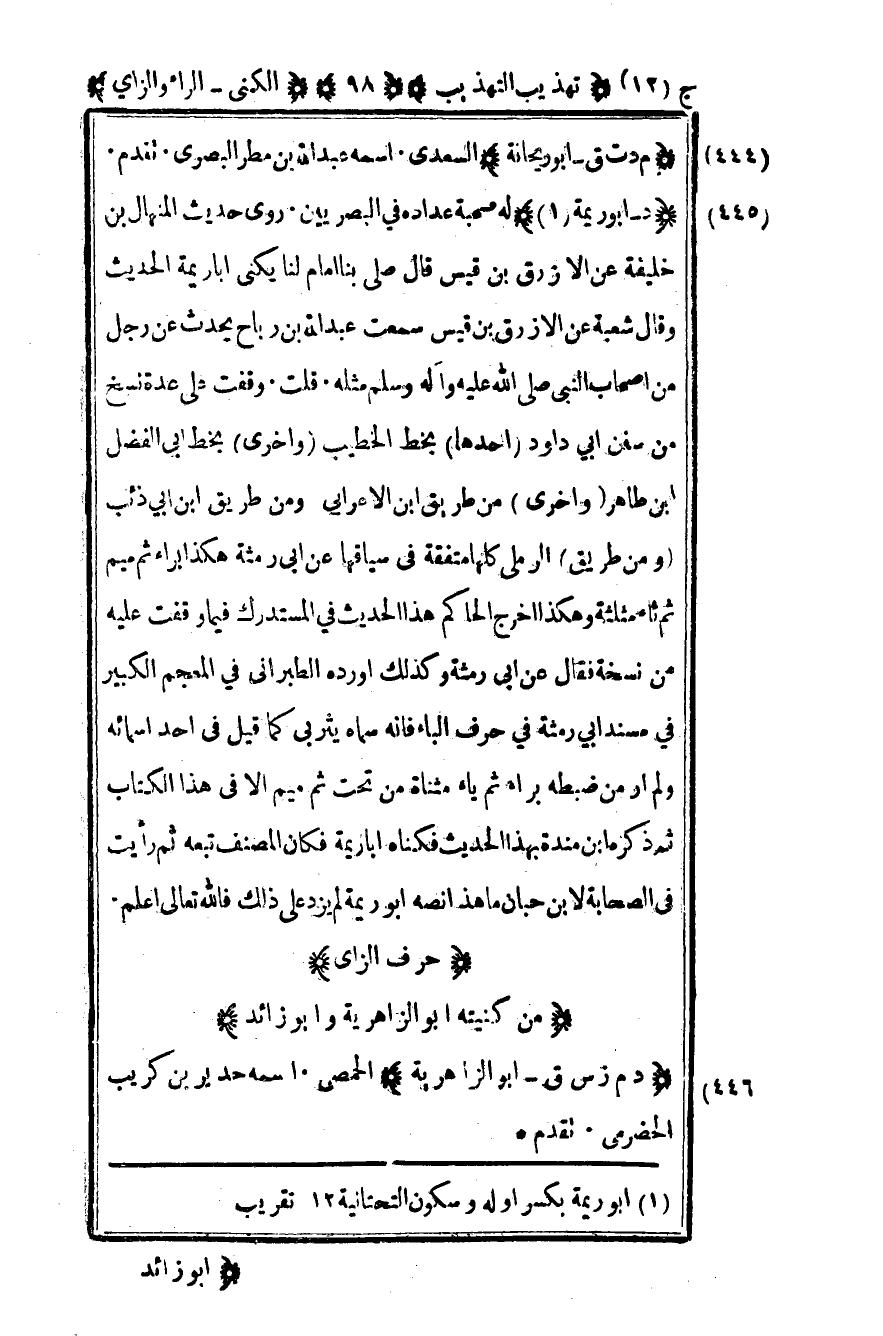 ج (١٢) ﴿ تهذيب التهذيب ﴾ ﴿ ٩٨ ﴾ ﴿ الكنى - الراء والزاي ﴾
(٤٤٤) ﴿ م د ت ق - ابو ريحانة ﴾ السعدى٠ اسمه عبدالله بن مطر البصرى٠ تقدم٠
(٤٤٥) ﴿ د - ابو ريمة (١) ﴾ له صحبة عداده في البصريين٠ روى حديث المنهال بن
خليفة عن الازرق بن قيس قال صلى بنا امام لنا يكنى ابا ريمة الحديث
وقال شعبة عن الازرق بن قيس سمعت عبدالله بن رباح يحدث عن رجل
من اصحاب النبى صلى الله عليه وآله وسلم مثله٠ قلت٠ وقفت على عدة نسخ
من سنن ابي داود (احدها) بخط الخطيب (واخرى) بخط ابى الفضل
ابن طاهر (واخرى) من طريق ابن الاعرابى ومن طريق ابن ابي ذئب
(ومن طريق) الرملى كلها متفقة فى سياقها عن ابى رمثة هكذا براء ثم ميم
ثم ثاء مثلثة وهكذا اخرج الحاكم هذا الحديث في المستدرك فيما وقفت عليه
من نسخة فقال عن ابى رمثة وكذلك اورده الطبرانى في المعجم الكبير
في مسند ابي رمثة في حرف الياء فانه سماه يثربى كما قيل فى احد اسمائه
ولم ار من ضبطه براء ثم ياء مثناة من تحت ثم ميم الا فى هذا الكتاب
ثم ذكره ابن مندة بهذا الحديث فكناه ابا ريمة فكان المصنف تبعه ثم رأيت
فى الصحابة لابن حبان ما هذا نصه ابو ريمة لم يزد على ذالك فالله تعالى اعلم٠
﴿ حرف الزاى ﴾
﴿ من كنيته ابو الزاهرية وابو زائد ﴾
(٤٤٦ ﴿ د م ز س ق - ابو الزاهرية ﴾ الحمصى ٠ اسمه حدير بن كريب
الحضرمى ٠ تقدم ٠
(١) ابو ريمة بكسر اوله وسكون التحتانية ١٢ تقريب
﴿ ابو زائد